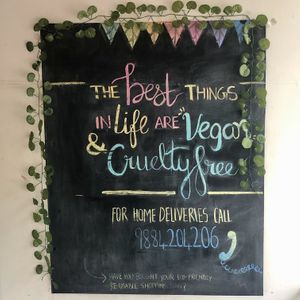 THE Best THINGS
IN Life ARE "Vegan
& Cruelty free
FOR HOME DELIVERIES CALL
9884204206
→ HAVE YOU BROUGHT YOUR ECO-FRIENDLY
REUSABLE SHOPPING